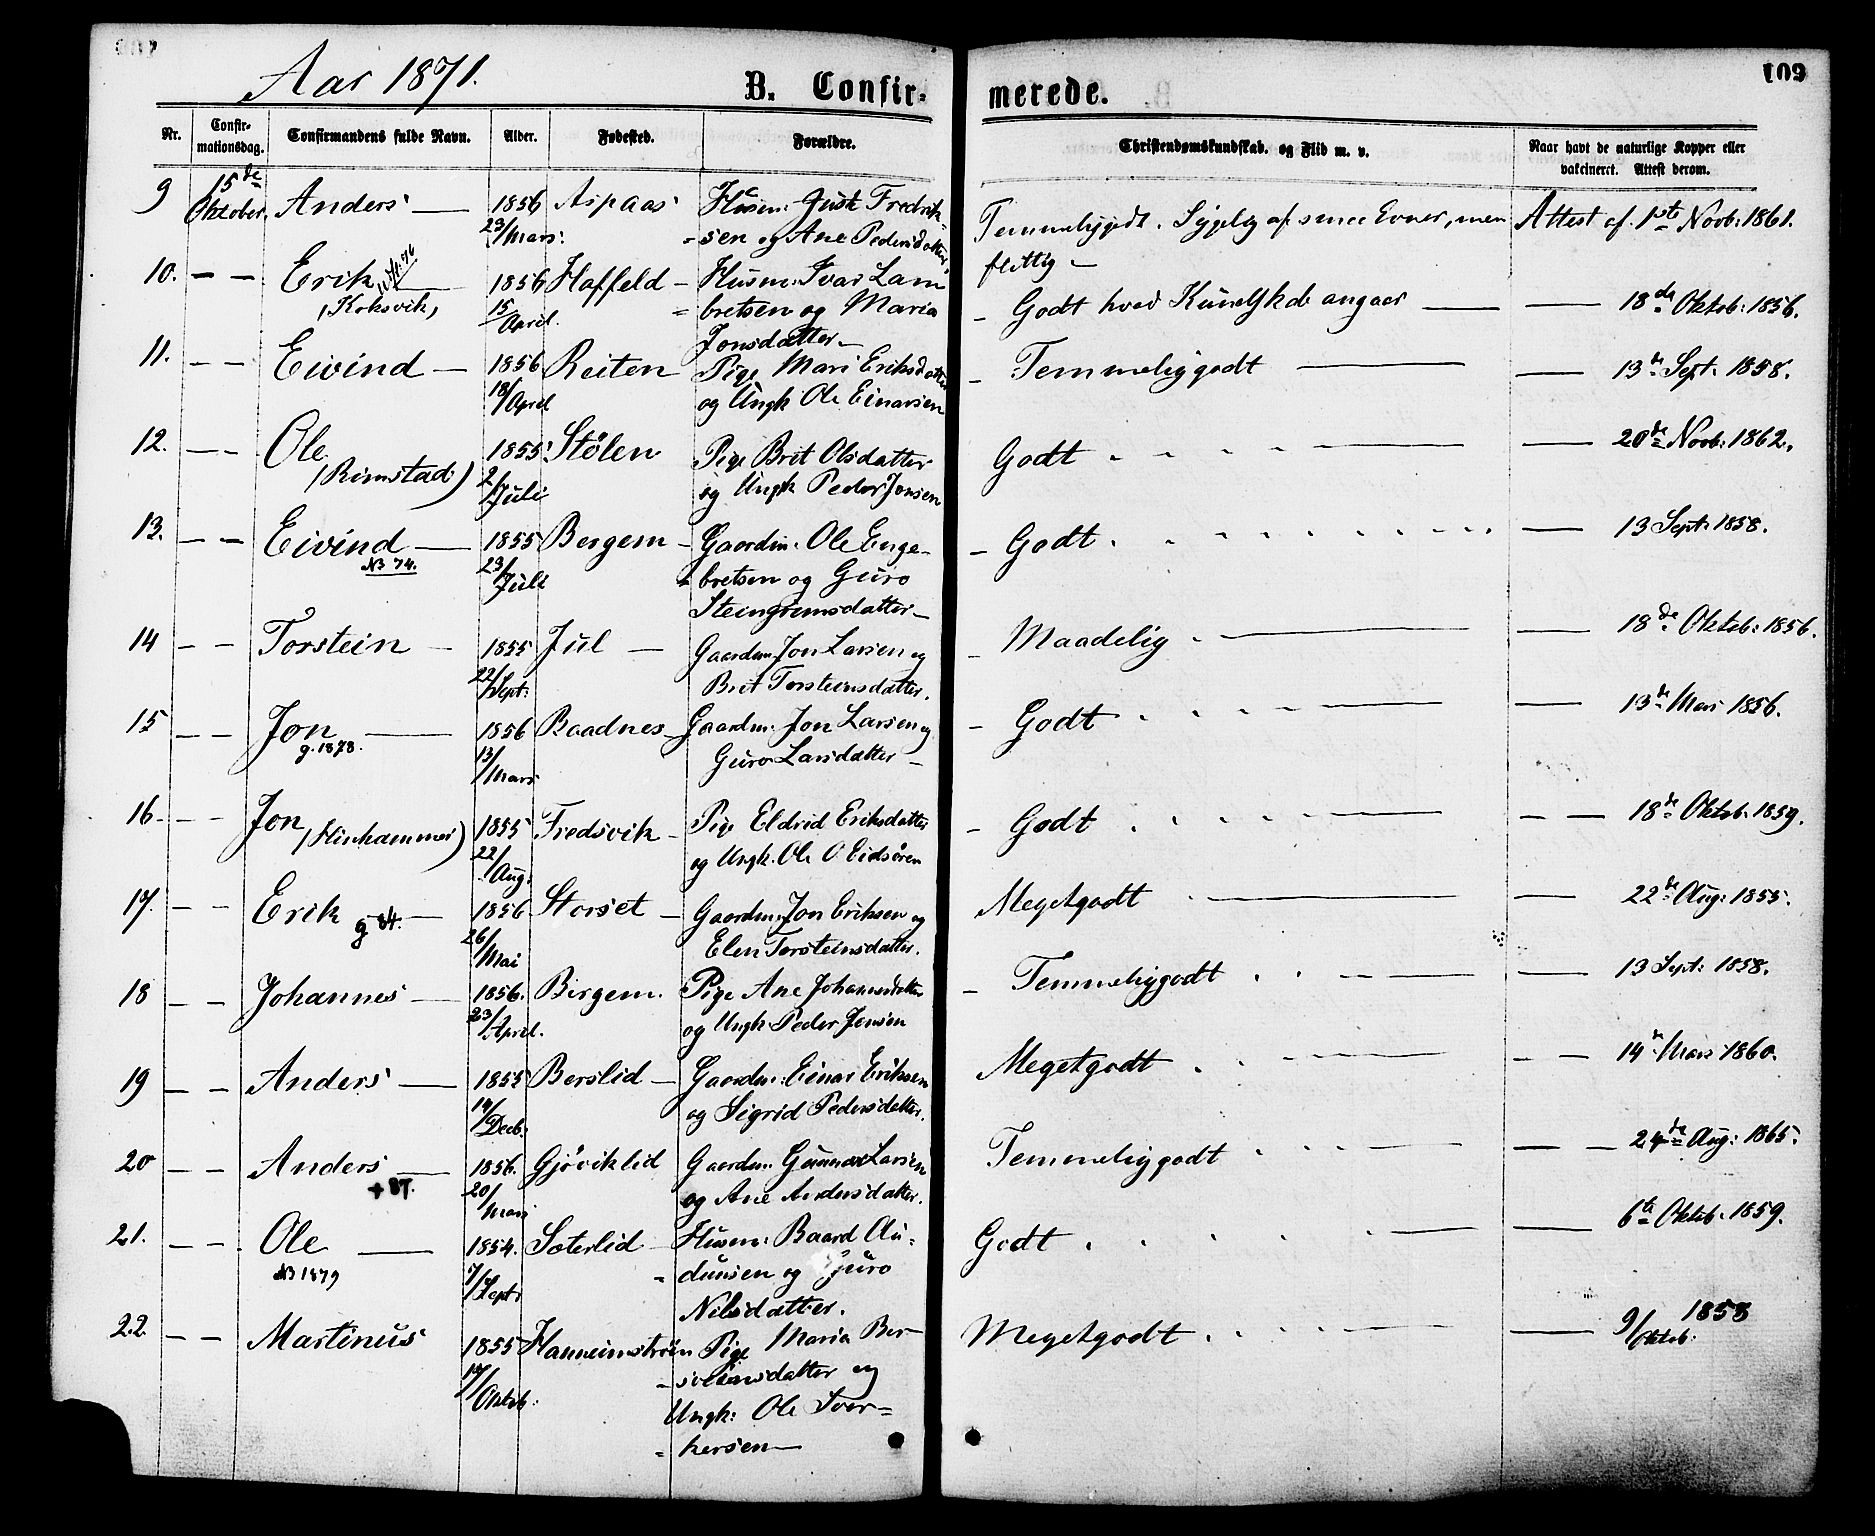 Aar 1871.
B. Confirmerede.
109
Nr.
Confirmationsdag.
Confirmandens fulde Navn.
Alder.
Fødested.
Forældre.
Christendomskundskab, og Flid m. v.
Naar havt de naturlige Kopper eller
vakcineret. Attest derom.
9 15de Oktober. Anders — 1856 23/Mars. Aspaas Husm: Just Fredrik-
sen og Ane Pedersdatter. Temmeliggodt. Sygelig af smaa Evner, men
flittig — Attest af 1ste Novb: 1861.
10. — — Erik (Koksvik) 1856 15/April. Haffeld — Husm: Ivar Lam
=bretsen og Maria
Jonsdatter — — Godt hvad Kundskab angaar — — 18de Oktob: 1856.
11. — — Eivind — 1856 18/April Reiten Pige Mari Eriksdatter
og Ungk Ole Einarsen — Temmeliggodt — — 13de Sept. 1858.
12. — — Ole (Rimstad) 1855 2/Juli Stølen Pige Brit Olsdatter
og Ungk Peder Jonsen Godt — — 20de Novb: 1862.
13. — — Eivind — N3 74. 1855 23/Juli Bergem — Gaardm. Ole Enge-
=bretsen og Guro
Steingrimsdatter — — Godt. — 13 Sept: 1858.
14 — — Torstein — 1855 22/Sept: Jul — Gaardm. Jon Larsen og
Brit Torsteinsdatter. — Maadelig — — 18de Oktob: 1856.
15 — — Jon — g. 1878. 1856 13/Mars Baadnes — Gaardm. Jon Larsen og
Guro Larsdatter — — Godt — — 13de Mars 1856.
16 — — Jon (Hinhammer) 1855 22/Aug: Fredsvik — Pige Eldrid Eriksdatter
og Ungk. Ole O Eidsøren — Godt — — — 18de Oktob. 1859.
17. — — Erik — g 84. 1856 26/Mai Storset — Gaardm. Jon Eriksen og
Elen Torsteinsdatter. Megetgodt — — 22de Aug: 1855.
18 — — Johannes — 1856. 23/April. Bergem. Pige Ane Johannesdatter
og Ungk: Peder Jonsen — Temmeliggodt — — 13 Sept: 1858.
19 — — Anders — 1855 14/Decb: Berslid — Gaardm: Einar Eriksen
og Sigrid Pedersdatter. Megetgodt — — — 14de Mars 1860.
20 — — Anders — + 87. 1856. 20/Mars Gjøviklid Gaardm. Gunnar Larsen
og Ane Andersdatter. Temmeliggodt — — — 24de Aug: 1865.
21. — — Ole — N3 1879 1854. 7/Sept: Sæterlid — Husm: Baard Au=
=dunsen og Guro
Nilsdatter. Godt — — 6te Oktob. 1859.
22. — — Martinus 1855 17/Oktob: Hammimstrøen Pige Maria Ber-
=sveinsdatter og
Ungk: Ole Sver=
=kersen — Megetgodt — — 9/Oktob: 1858